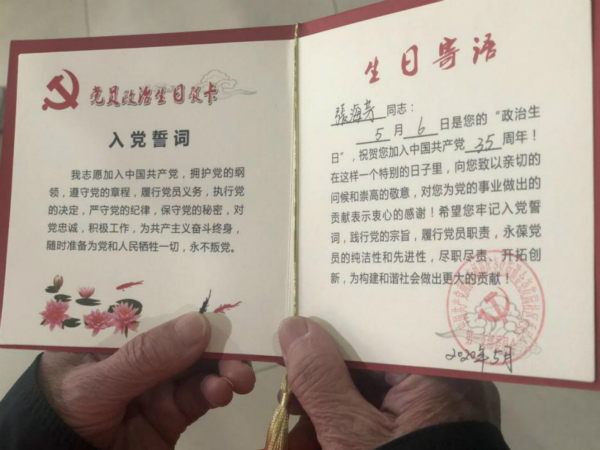 党员政治生日贺卡
入党誓词
我志愿加入中国共产党，拥护党的纲
领，遵守党的章程，履行党员义务，执行党
的决定，严守党的纪律，保守党的秘密，对
党忠诚，积极工作，为共产主义奋斗终身，
随时准备为党和人民牺牲一切，永不叛党。
生日寄语
張海芳 同志：
5 月 6 日是您的“政治生
日”，祝贺您加入中国共产党 35 周年！
在这样一个特别的日子里，向您致以亲切的
问候和崇高的敬意，对您为党的事业做出的
贡献表示衷心的感谢！希望您牢记入党誓
词，践行党的宗旨，履行党员职责，永葆党
员的纯洁性和先进性，尽职尽责、开拓创
新，为构建和谐社会做出更大的贡献！
2020年5月